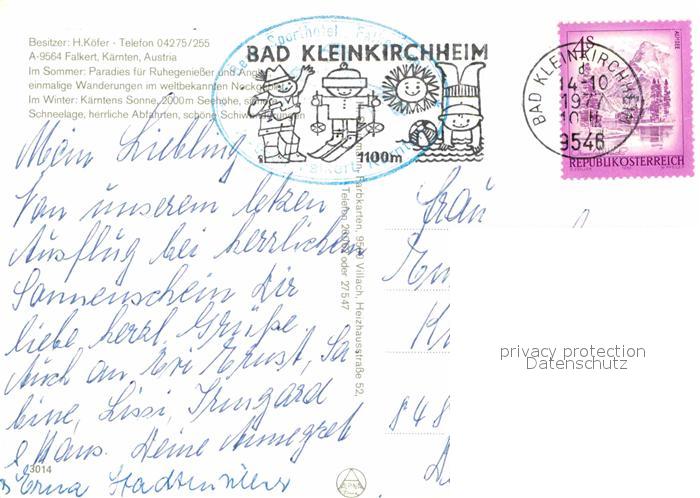 Besitzer: H.Köfer - Telefon 04275/255
A-9564 Falkert, Kärnten, Austria
Im Sommer: Paradies für Ruhegenießer und
einmalige Wanderungen im weltbekannten
Im Winter: Kärntens Sonne, 2000m Seehöhe,
Schneelage, herrliche Abfahrten, schöne
Sporthotel Falkert
BAD KLEINKIRCHHEIM
1100m
BAD KLEINKIRCHHEIM
14-10
1977
9546
4S
ALMSEE
REPUBLIK ÖSTERREICH
Mein Liebling
Von unserem letzen
Ausflug bei herrlichem
Sonnenschein Dir
liebe, herzl. Grüße,
Auch an Evi Ernst, Sa
bine, Lissi, Irmgard
Hans. Deine Annegret
Erna
3014
Farbkarten, 9500 Villach, Heizhausstraße 52,
Telefon oder 27547
Frau
848
privacy protection
Datenschutz